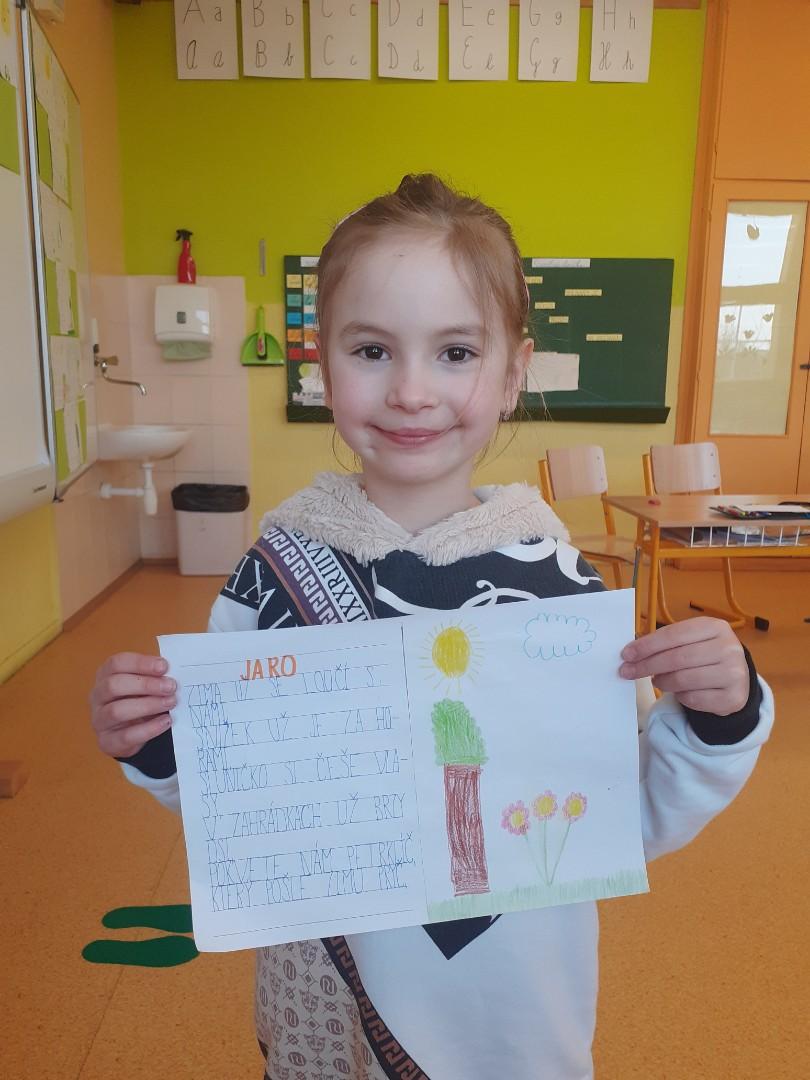 A a
A a
B b
B b
C c
C c
D d
D d
E e
E e
G g
G g
H h
H h
JARO
ZIMA UŽ SE LOUČÍ S
NÁMI,
SNÍŽEK UŽ JE ZA HO-
RAMI
SLUNÍČKO SI ČEŠE VLA-
SY
V ZAHRÁDKÁCH UŽ BRZY
ASI
POKVETE NÁM PETRKLÍČ,
KTERÝ POŠLE ZIMU PRYČ.